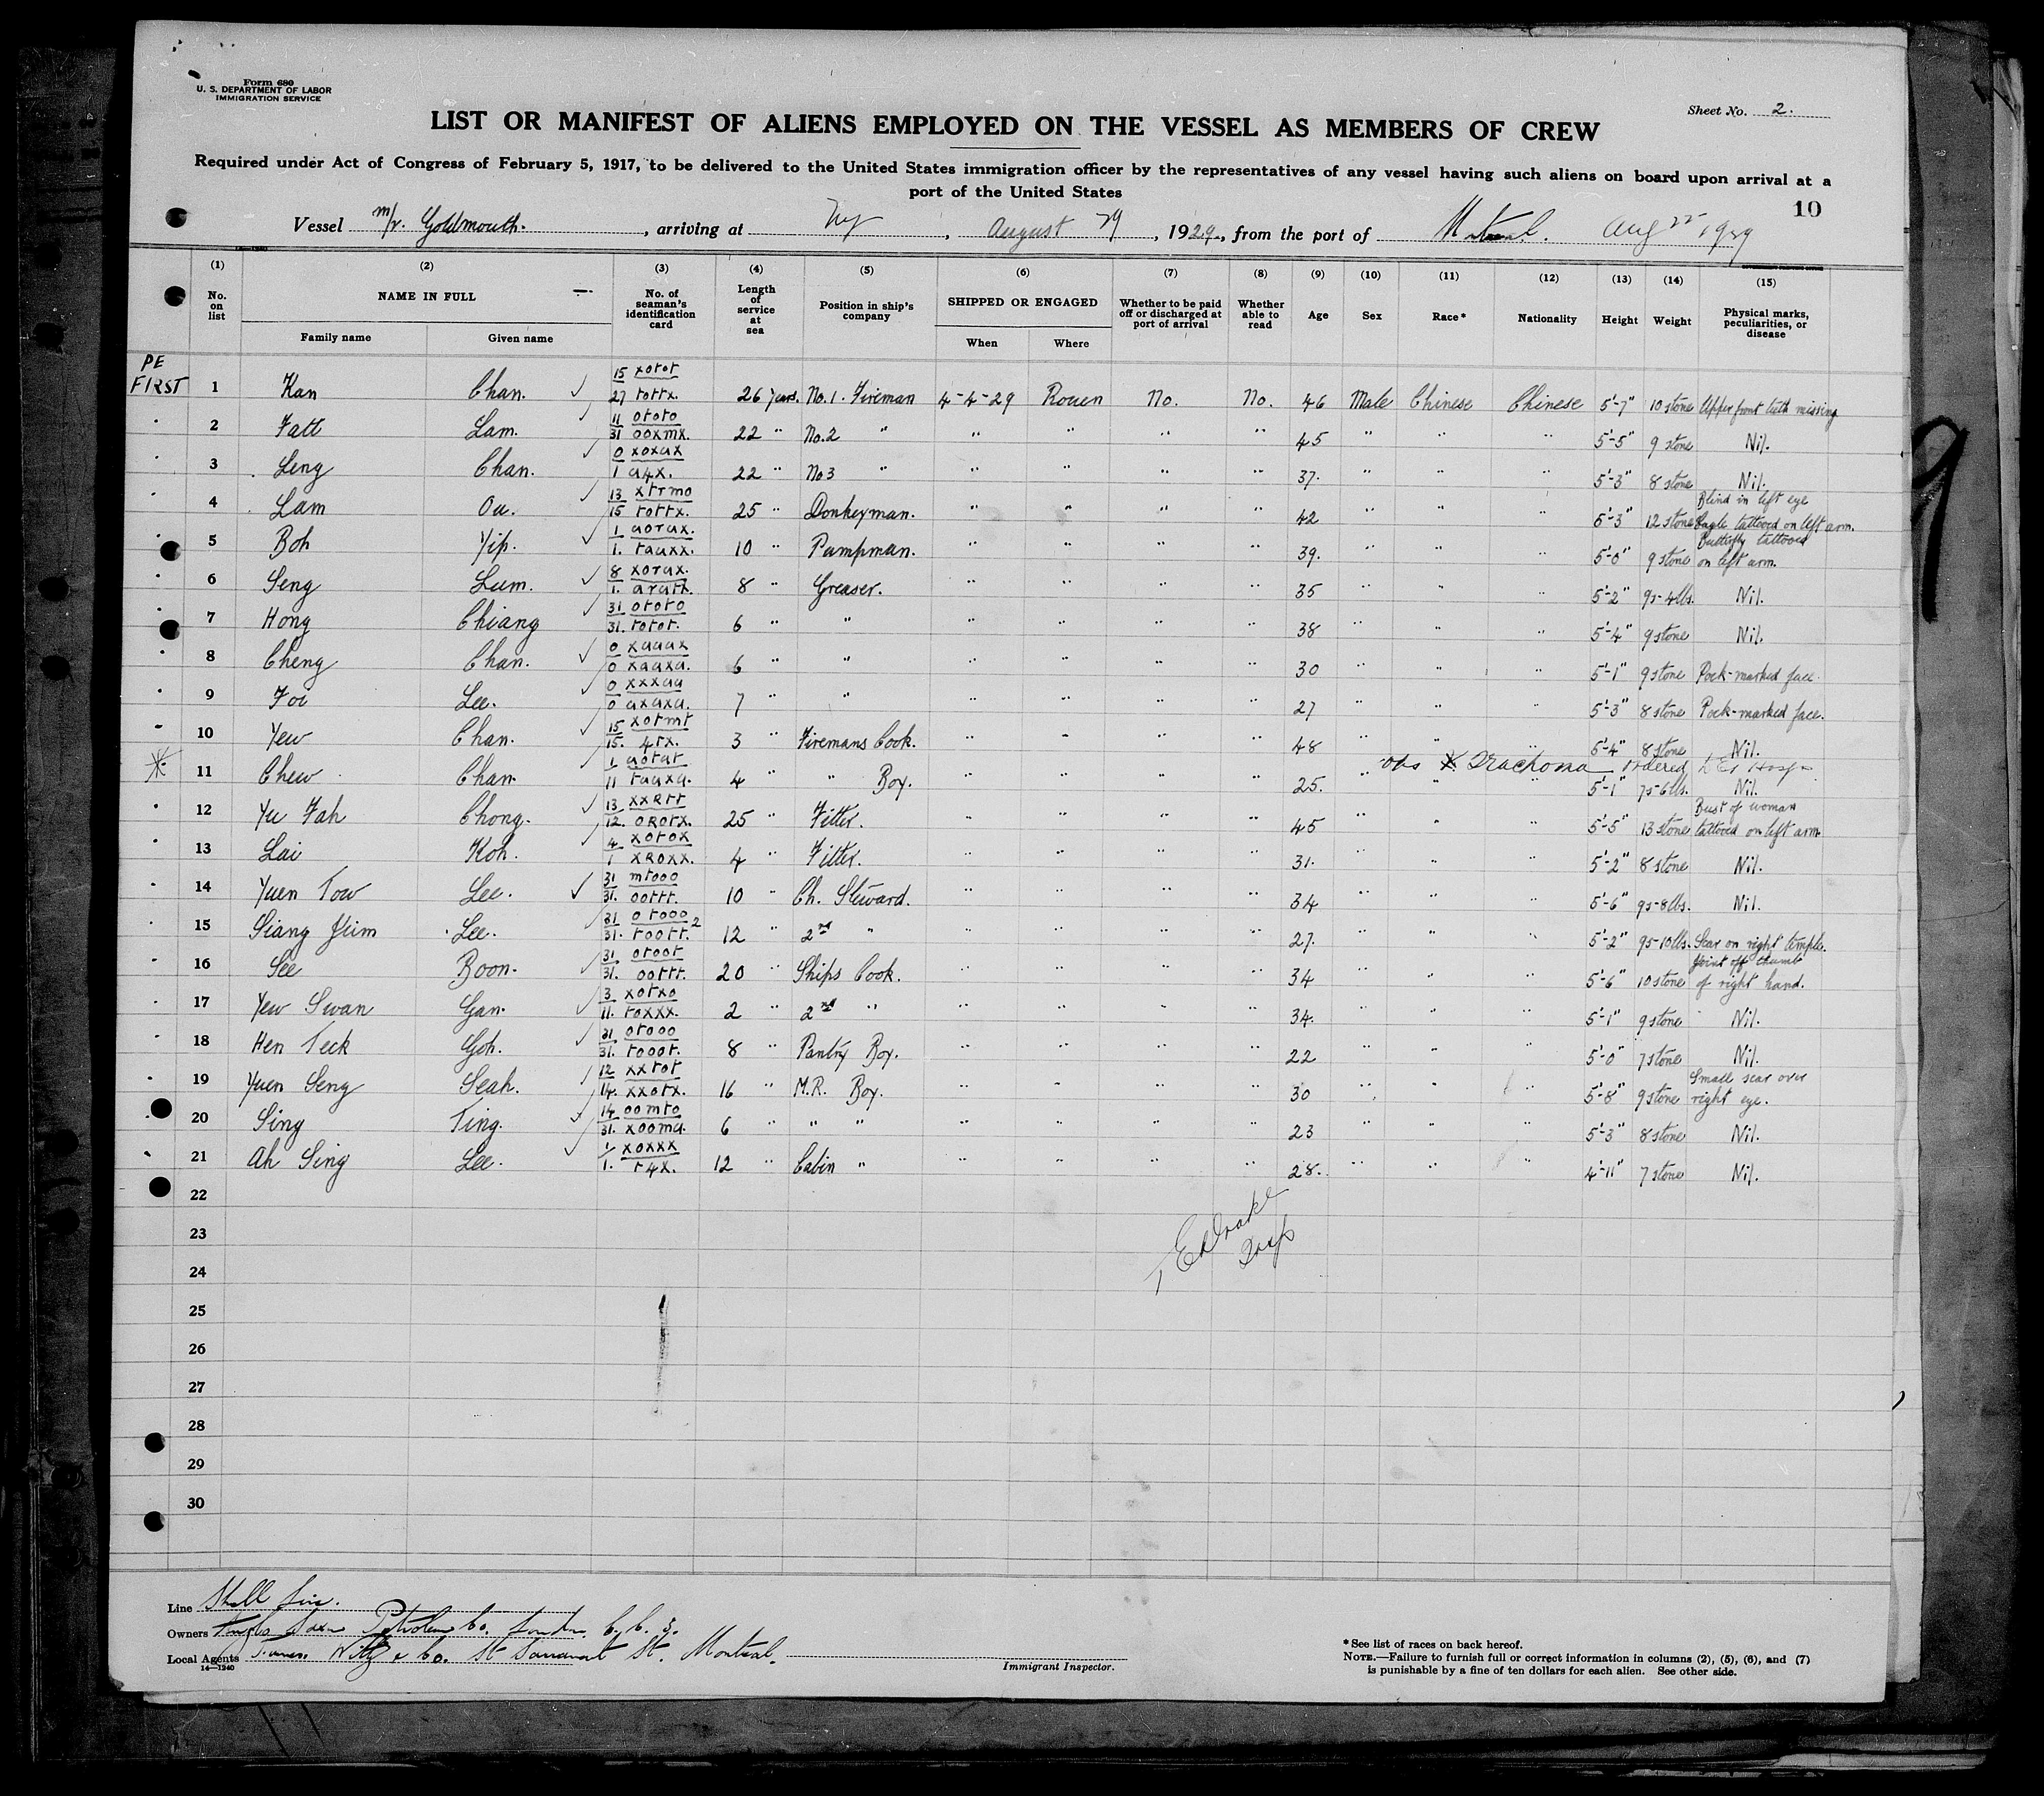 Form 680
U. S. DEPARTMENT OF LABOR
IMMIGRATION SERVICE
Sheet No. 2.
LIST OR MANIFEST OF ALIENS EMPLOYED ON THE VESSEL AS MEMBERS OF CREW
Required under Act of Congress of February 5, 1917, to be delivered to the United States immigration officer by the representatives of any vessel having such aliens on board upon arrival at a
port of the United States
10
Vessel m/v. Goldmouth. , arriving at Ny , August 29 , 1929, from the port of Montreal. Aug 25 1929
(1) (2) (3) (4) (5) (6) (7) (8) (9) (10) (11) (12) (13) (14) (15)
No. on list NAME IN FULL Family name Given name No. of seaman's identification card Length of service at sea Position in ship's company SHIPPED OR ENGAGED When Where Whether to be paid off or discharged at port of arrival Whether able to read Age Sex Race* Nationality Height Weight Physical marks, peculiarities, or disease
PE
FIRST
1 Kan Chan. ✓ 15 xotot 27 tottx. 26 years. No.1. Fireman 4-4-29 Rouen No. No. 46 Male Chinese Chinese 5'-7" 10 stone Upper front teeth missing
2 Fatt Lam. ✓ 11 ototo 31 ooxmx. 22 " No.2 " " " " " 45 " " " 5'-5" 9 stone Nil.
3 Leng Chan. ✓ 0 xoxax 1 a4x. 22 " No3 " " " " " 37. " " " 5'-3" 8 stone Nil.
4 Lam Ou. ✓ 13 xtrmo 15 tottx. 25 " Donkeyman. " " " " 42 " " " 5'-3" 12 stone Blind in left eye Eagle tattooed on left arm.
5 Boh Yip. ✓ 1 aorax. 1. rauxx. 10 " Pumpman. " " " " 39. " " " 5'-0" 9 stone Butterfly tattooed on left arm.
6 Seng Lum. ✓ 8 xorax. 1. aratx. 8 " Greaser. " " " " 35 " " " 5'-2" 9s-4lbs. Nil.
7 Hong Chiang ✓ 31 ototo 31. totot. 6 " " " " " " 38 " " " 5'-4" 9 stone Nil.
8 Cheng Chan. ✓ 0 xaaax 0 xaaxa. 6 " " " " " " 30 " " " 5'-1" 9 stone Pock-marked face.
9 Foo Lee. ✓ 0 xxxaa 0 axaxa. 7 " " " " " " 27 " " " 5'-3" 8 stone Pock-marked face.
10 Yew Chan. ✓ 15 xotmt 15. 4tx. 3 " Firemans Cook. " " " " 48 " " " 5'-4" 8 stone Nil.
obs X Trachoma ordered to EI Hosp
11 Chew Chan. ✓ 1 aotat 11 tauxa. 4 " " Boy. " " " " 25. " " " 5'-1" 7s-6lbs. Nil.
12 Yu Fah Chong. ✓ 13 xxRtt 12. oRotx. 25 " Fitter. " " " " 45 " " " 5'-5" 13 stone Bust of woman tattooed on left arm.
13 Lai Koh. ✓ 4 xotox 1 xRoxx. 4 " Fitter. " " " " 31. " " " 5'-2" 8 stone Nil.
14 Yuen Tow Lee. ✓ 31 mtooo 31. oottt. 10 " Ch. Steward. " " " " 34 " " " 5'-6" 9s-8lbs. Nil.
15 Siang Jüim Lee. ✓ 31 otooo 2 31. toott. 12 " 2nd " " " " " 27. " " " 5'-2" 9s-10lbs. Scar on right temple.
16 See Boon. ✓ 31 otoot 31. oottt. 20 " Ships Cook. " " " " 34 " " " 5'-6" 10 stone Joint off thumb of right hand.
17 Yew Swan Gan. ✓ 3 xotxo 11. toxxx. 2 " 2nd " " " " " 34. " " " 5'-1" 9 stone Nil.
18 Hen Teck Goh. ✓ 31 otooo 31. tooot. 8 " Pantry Boy. " " " " 22 " " " 5'-0" 7 stone Nil.
19 Yuen Seng Seah. ✓ 12 xxtot 14. xxotx. 16 " M.R. Boy. " " " " 30 " " " 5'-8" 9 stone Small scar over right eye.
20 Sing Ting. ✓ 14 oomto 31. xooma. 6 " " " " " " " 23 " " " 5'-3" 8 stone Nil.
21 Ah Sing Lee. ✓ 1 xoxxx 1. t4x. 12 " Cabin " " " " " 28. " " " 4'-11" 7 stone Nil.
22
23
24
25
26
27
28
29
30
Line Shell Line.
Owners Anglo Saxon Petroleum Co. London. E.C.3.
Local Agents St. Montreal.
14—1240
Immigrant Inspector.
* See list of races on back hereof.
NOTE.—Failure to furnish full or correct information in columns (2), (5), (6), and (7)
is punishable by a fine of ten dollars for each alien. See other side.